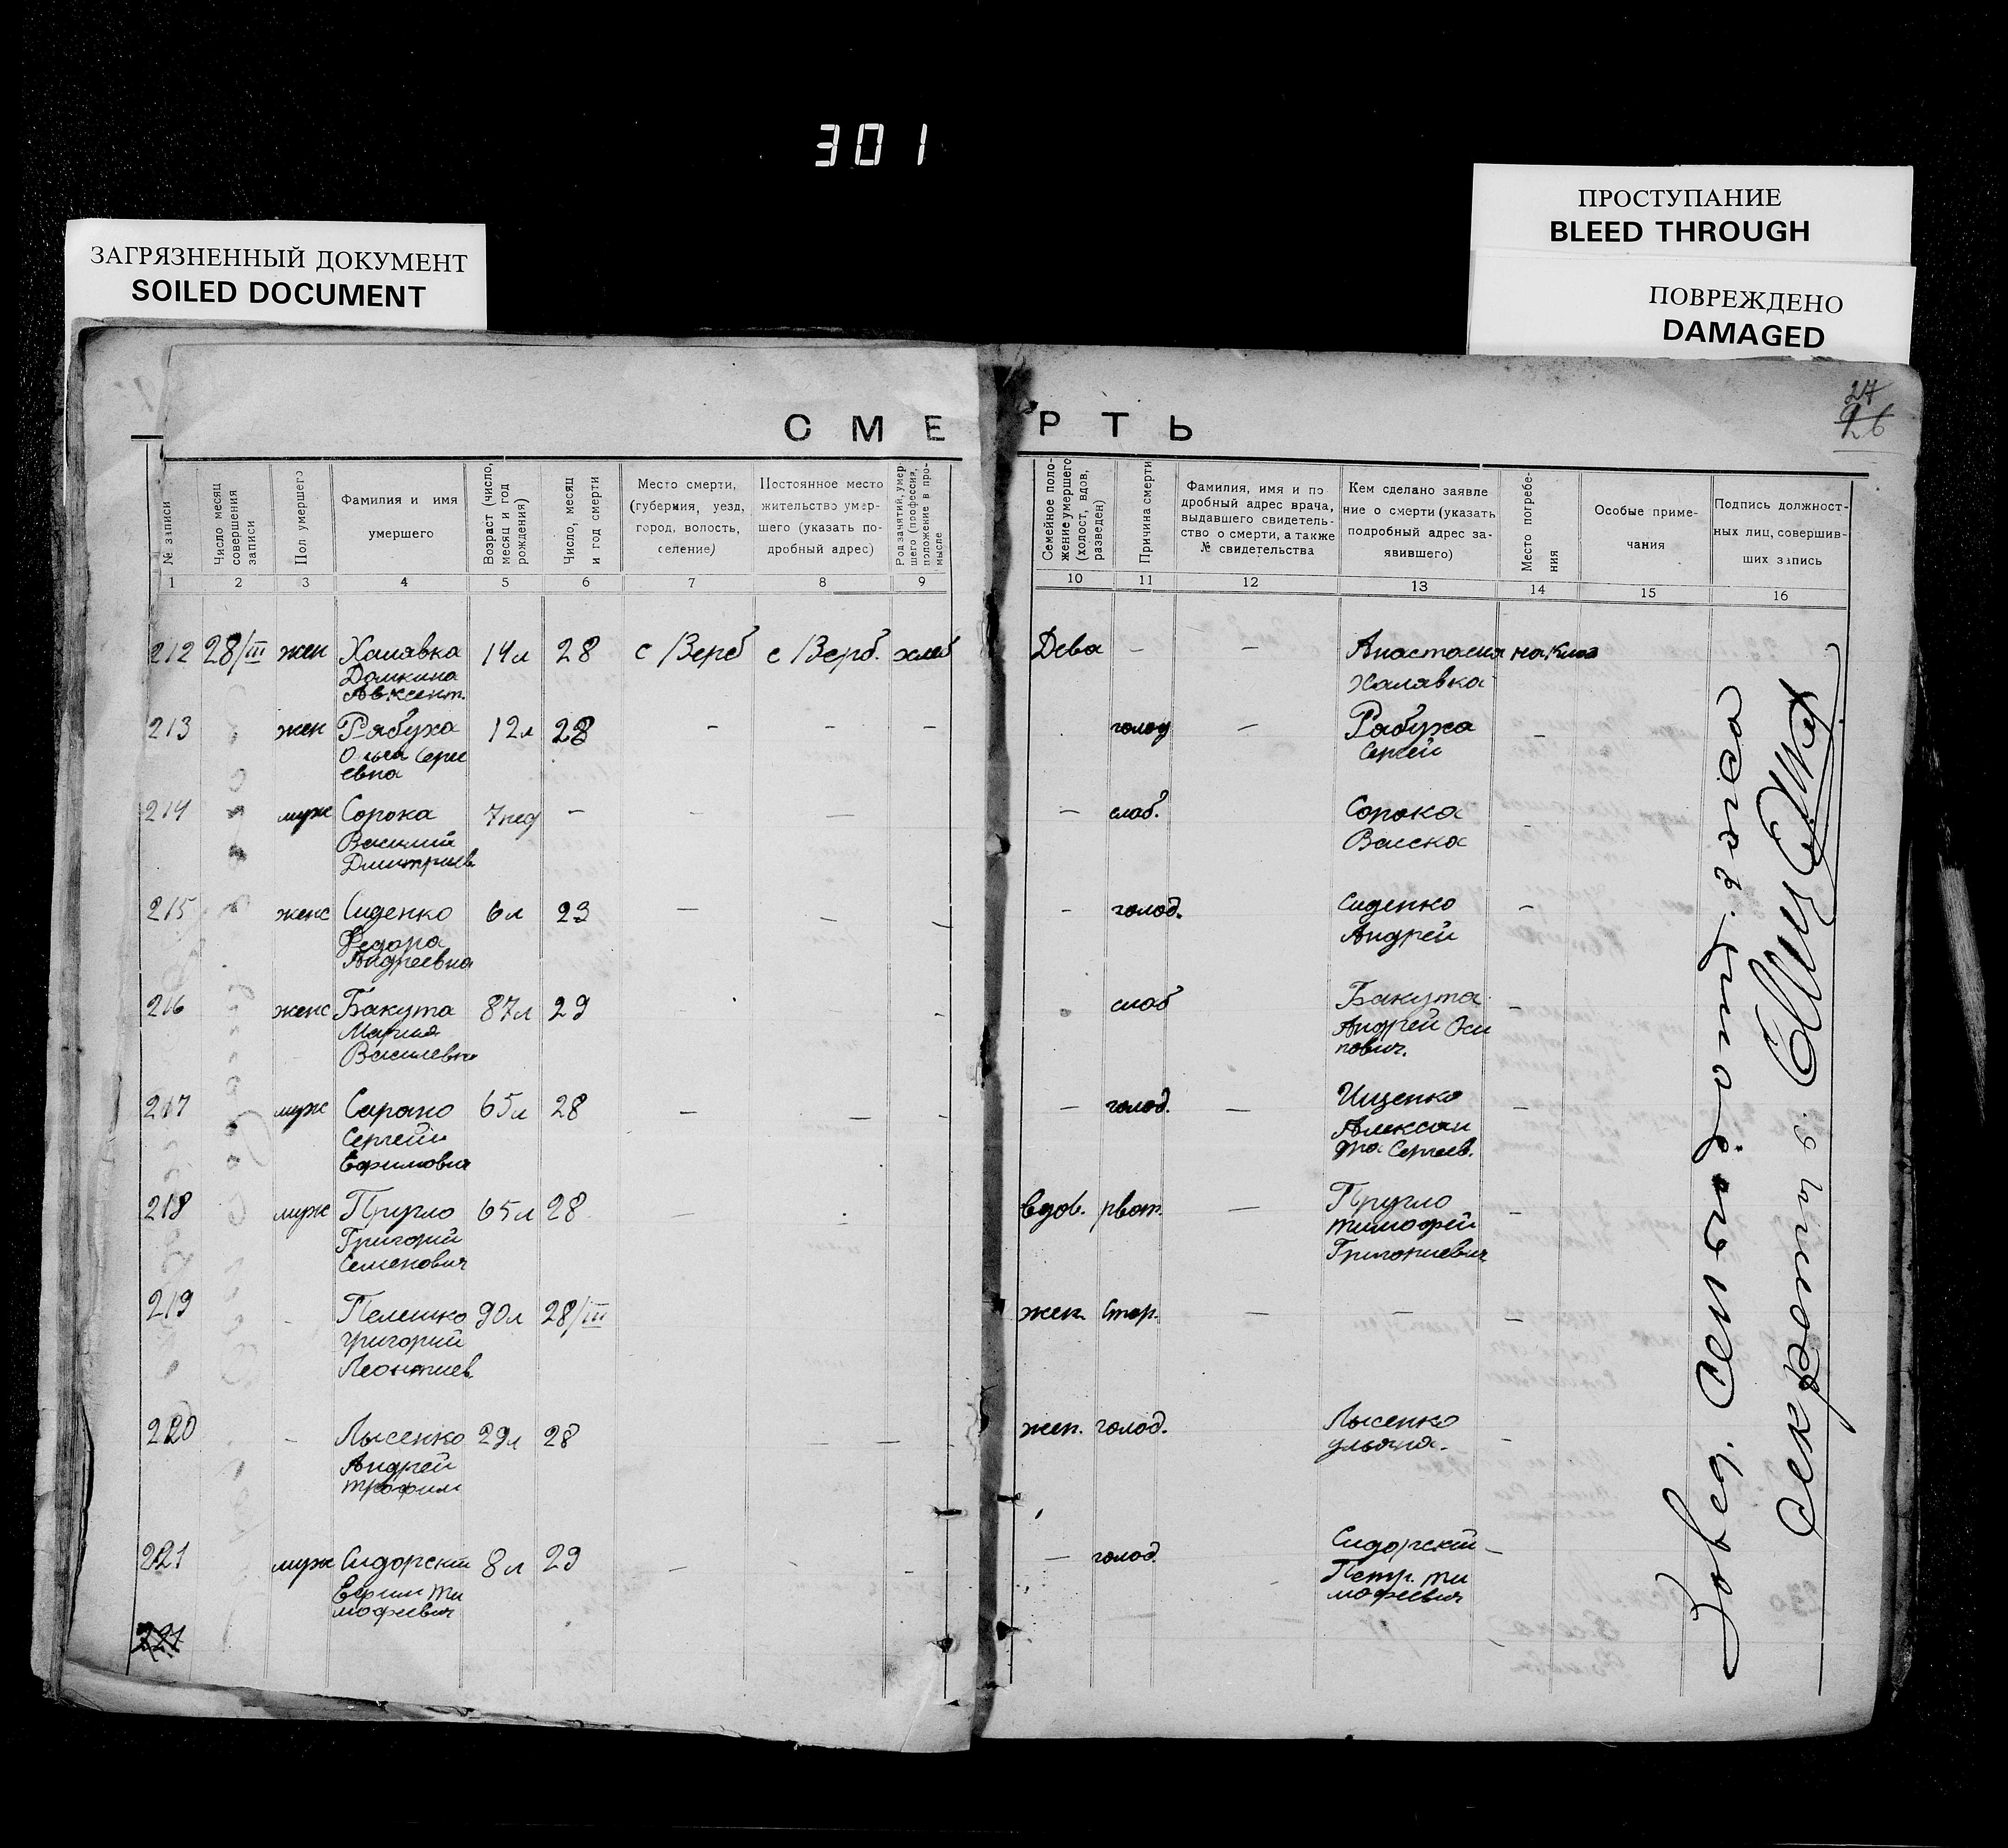 301
ЗАГРЯЗНЕННЫЙ ДОКУМЕНТ
SOILED DOCUMENT
ПРОСТУПАНИЕ
BLEED THROUGH
ПОВРЕЖДЕНО
DAMAGED
27
26
СМЕРТЬ
№ записи
Число месяц совершения записи
Пол умершего
Фамилия и имя
умершего
Возраст (число, месяц и год рождения)
Число, месяц и год смерти
Место смерти,
(губерния, уезд,
город, волость,
селение)
Постоянное место
жительство умер-
шего (указать по-
дробный адрес)
Род занятий, умер-
шего (профессия,
положение в про-
мысле
Семейное поло-
жение умершего
(холост, вдов,
разведен)
Причина смерти
Фамилия, имя и по
дробный адрес врача,
выдавшего свидетель-
ство о смерти, а также
№ свидетельства
Кем сделано заявле
ние о смерти (указать
подробный адрес за-
явившего)
Место погребе-
ния
Особые приме-
чания
Подпись должност-
ных лиц, совершив-
ших запись
1 2 3 4 5 6 7 8 9 10 11 12 13 14 15 16
212 28/III жен Халявка 14л 28 с Верб с Верб. хлеб Дева — — Анастасия на клад
Домкина Халявка
Авксент.
213 жен Рябуха 12л 28 — — — голод — Рябуха —
Ольга Серге Сергей
евна
214 муж Сорока 7нед — — — — слаб. Сорока —
Василий Васска
Дмитриев
215 женс Сиденко 6л 29 — — — — голод. Сиденко —
Федора Андрей
Андреевна
216 женс Бакута 87л 29 - - - - слаб Бакута —
Мария Андрей Оси
Василевна пович.
217 муж Сапоно 65л 28 — — - — голод. — Ищенко —
Сергей Алексан
Ефимович дра Сергеев.
218 муж Пругло 65л 28 — — вдов. рвот. — Пругло —
Григорий тимофей
Семенович Григориевич
219 - Пелешко 90л 28/III жен. Стар. — — —
григорий
Леонтиев
220 - Лысенко 29л 28 — — жен. голод. Лысенко -
Андрей ульяна.
трофим
221 муж Сидорский 8л 29 - - - — голод. Сидорский —
Ефим ти Петр. ти
мофеевич мофеевич
221
Секретарь с.